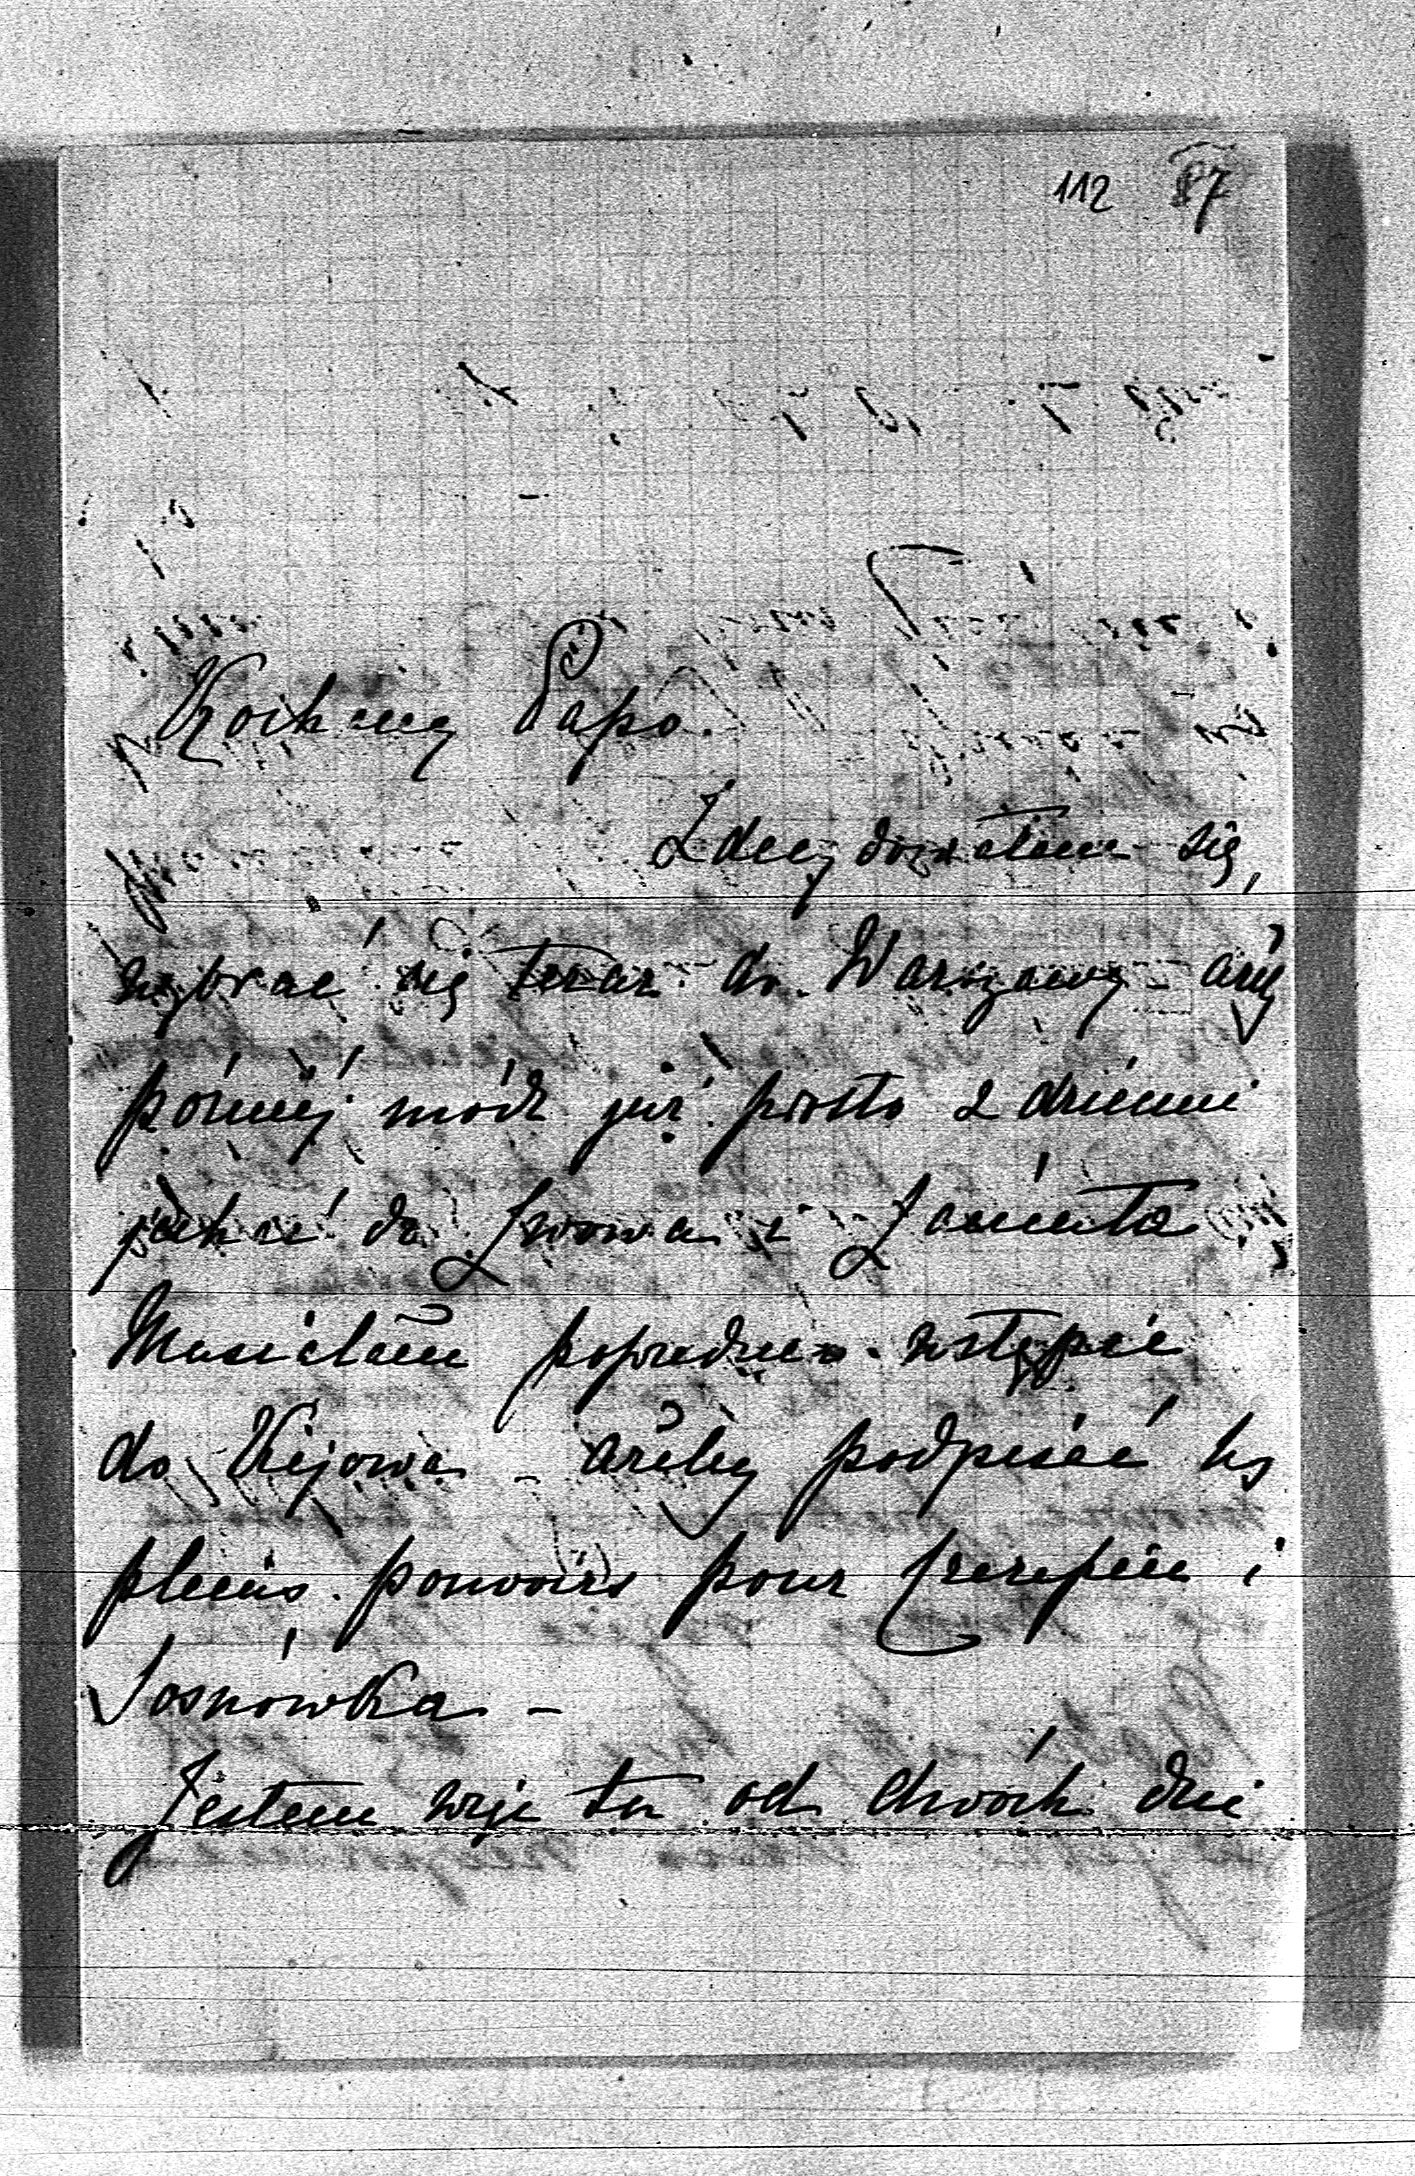 112 57
Kochany Papo.
Zdecydowałam się,
wybrać się teraz do Warszawy - aby
później módz już prosto z dziećmi
jechać do Lwowa i Łańcuta
Musiałam poprzednio wstąpić
do Kijowa - ażeby podpisać les
pleins pouvoirs pour Czerepin i
Sosnówka -
Jestem więc tu od dwóch dni